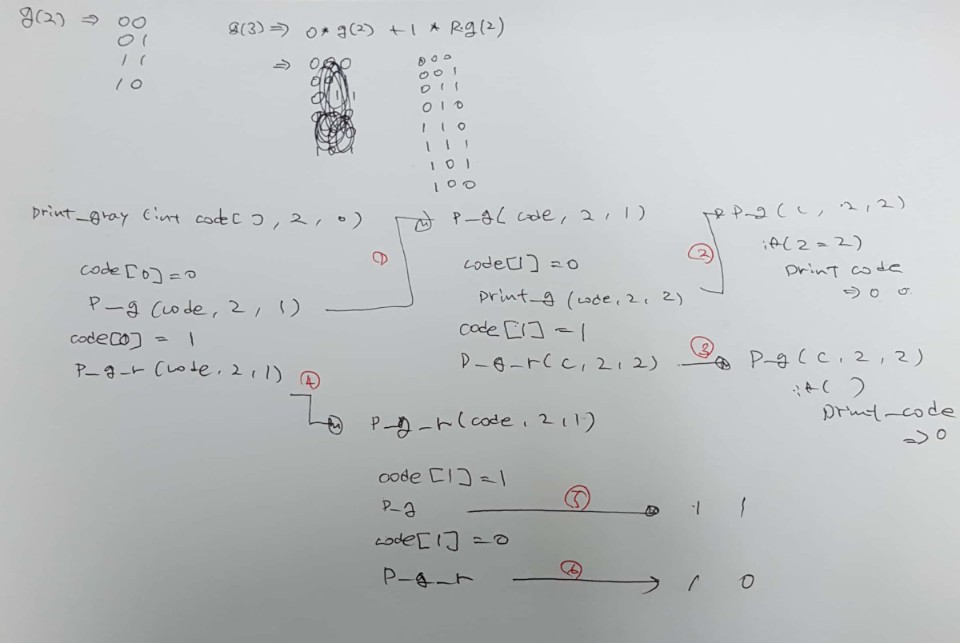 g(2) ⇒ 00
01
11
10
g(3) ⇒ 0 * g(2) + 1 * R.g(2)
⇒
000
001
011
010
110
111
101
100
print_gray (int code[], 2, 0)
code[0]=0
P_g (code, 2, 1)
code[0] = 1
P_g_r (code, 2, 1)
①
P_g( code, 2, 1)
code[1] = 0
print_g (code, 2, 2)
code[1] = 1
P_g_r(c, 2, 2)
②
P_g( c, 2, 2)
if(2=2)
print code
⇒ 0 0
③
P_g(c, 2, 2)
if( )
print_code
⇒ 0
④
P_g_r(code, 2, 1)
code[1]=1
P_g
⑤
1 1
code[1] = 0
P_g_r
⑥
1 0